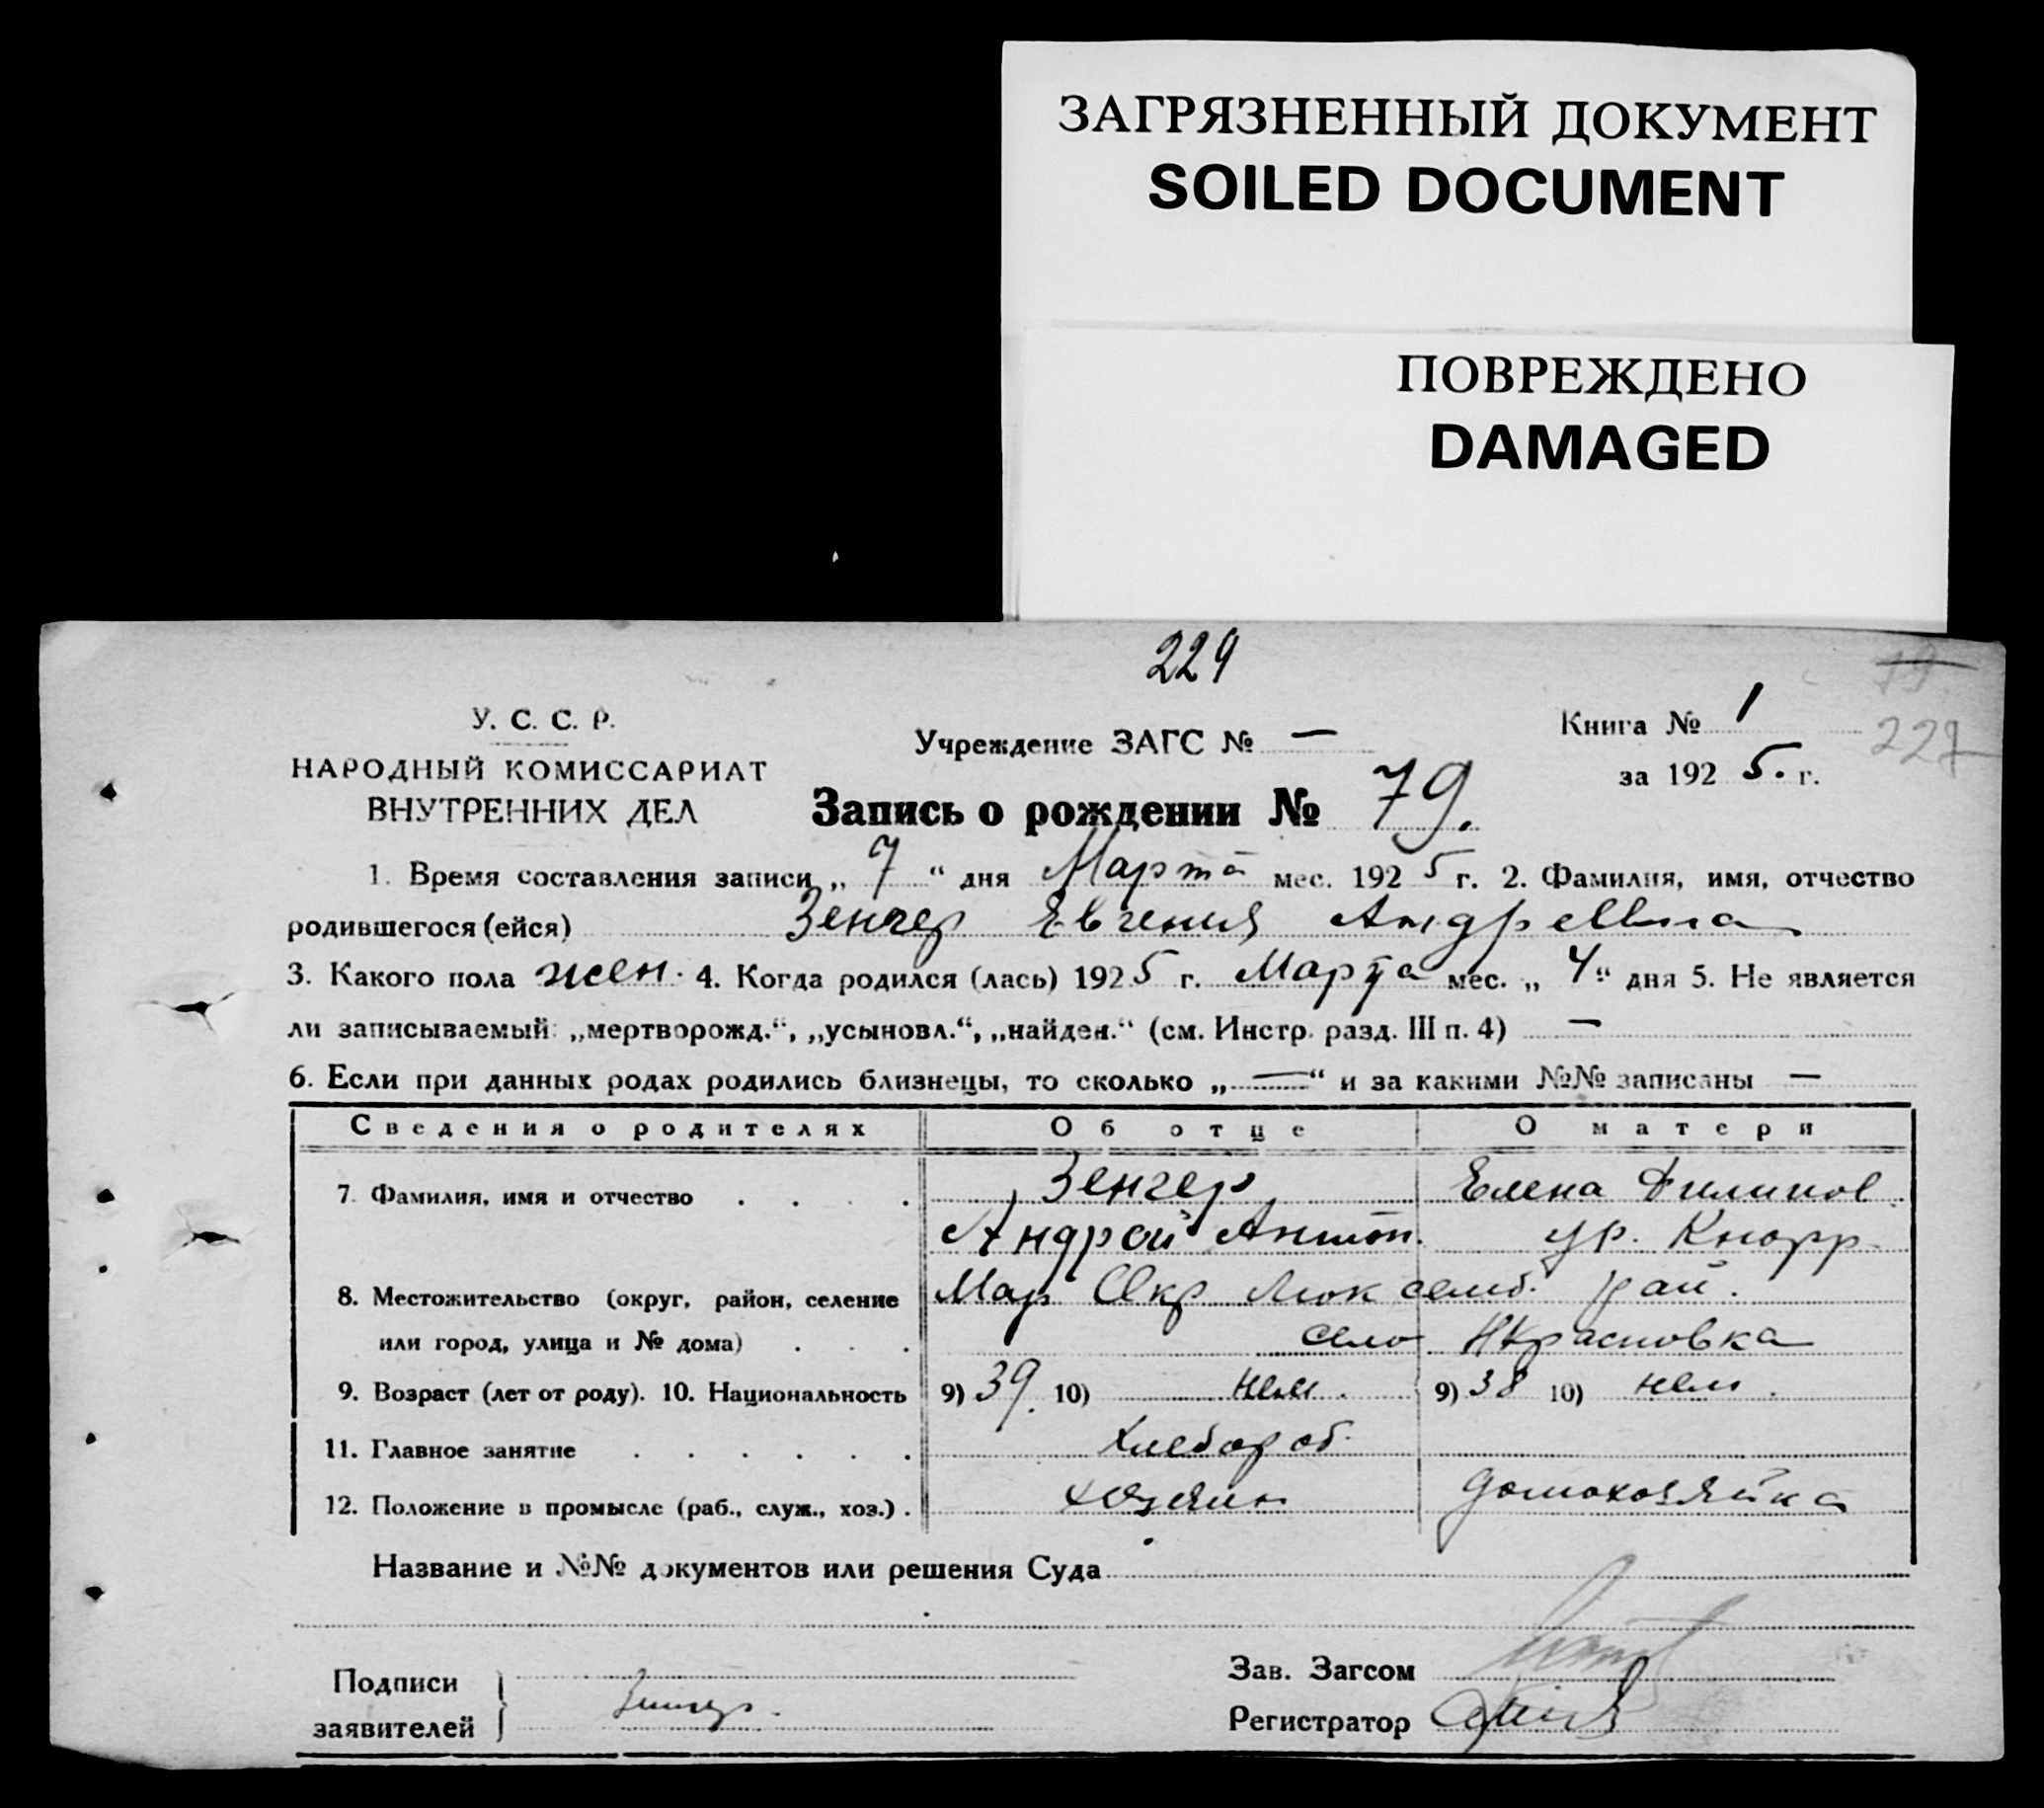 ЗАГРЯЗНЕННЫЙ ДОКУМЕНТ
SOILED DOCUMENT
ПОВРЕЖДЕНО
DAMAGED
229
79
227
У. С. С. Р.
НАРОДНЫЙ КОМИССАРИАТ
ВНУТРЕННИХ ДЕЛ
Учреждение ЗАГС № —
Книга № 1
за 192 5. г.
Запись о рождении № 79.
1. Время составления записи „ 7 “ дня Марта мес. 192 5 г. 2. Фамилия, имя, отчество
родившегося (ейся) Зенгер Евгения Андреевна
3. Какого пола жен. 4. Когда родился (лась) 192 5 г. Марта мес. „ 4 “ дня 5. Не является
ли записываемый: „мертворожд.“, „усыновл.“, „найден.“ (см. Инстр. разд. III п. 4) —
6. Если при данных родах родились близнецы, то сколько „ — “ и за какими №№ записаны —
Сведения о родителях Об отце О матери
7. Фамилия, имя и отчество . . . . Зенгер Елена Филипов
Андрей Антон. ур. Кнорр
8. Местожительство (округ, район, селение Мар Окр Люксемб. рай.
или город, улица и № дома) . . . село НКрасновка
9. Возраст (лет от роду). 10. Национальность 9) 39. 10) нем. 9) 38 10) нем.
11. Главное занятие . . . . . . Хлебороб.
12. Положение в промысле (раб., служ., хоз.) . хозяин домохозяйка
Название и №№ документов или решения Суда
Подписи
заявителей } Зенгер.
Зав. Загсом
Регистратор